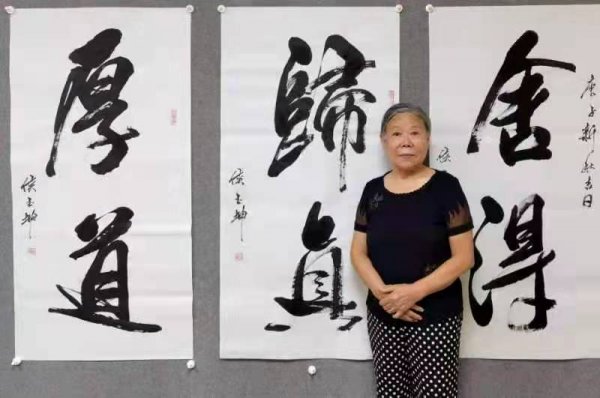 厚道
侯玉坤
歸真
侯玉坤
舍得
庚子新秋吉日
侯